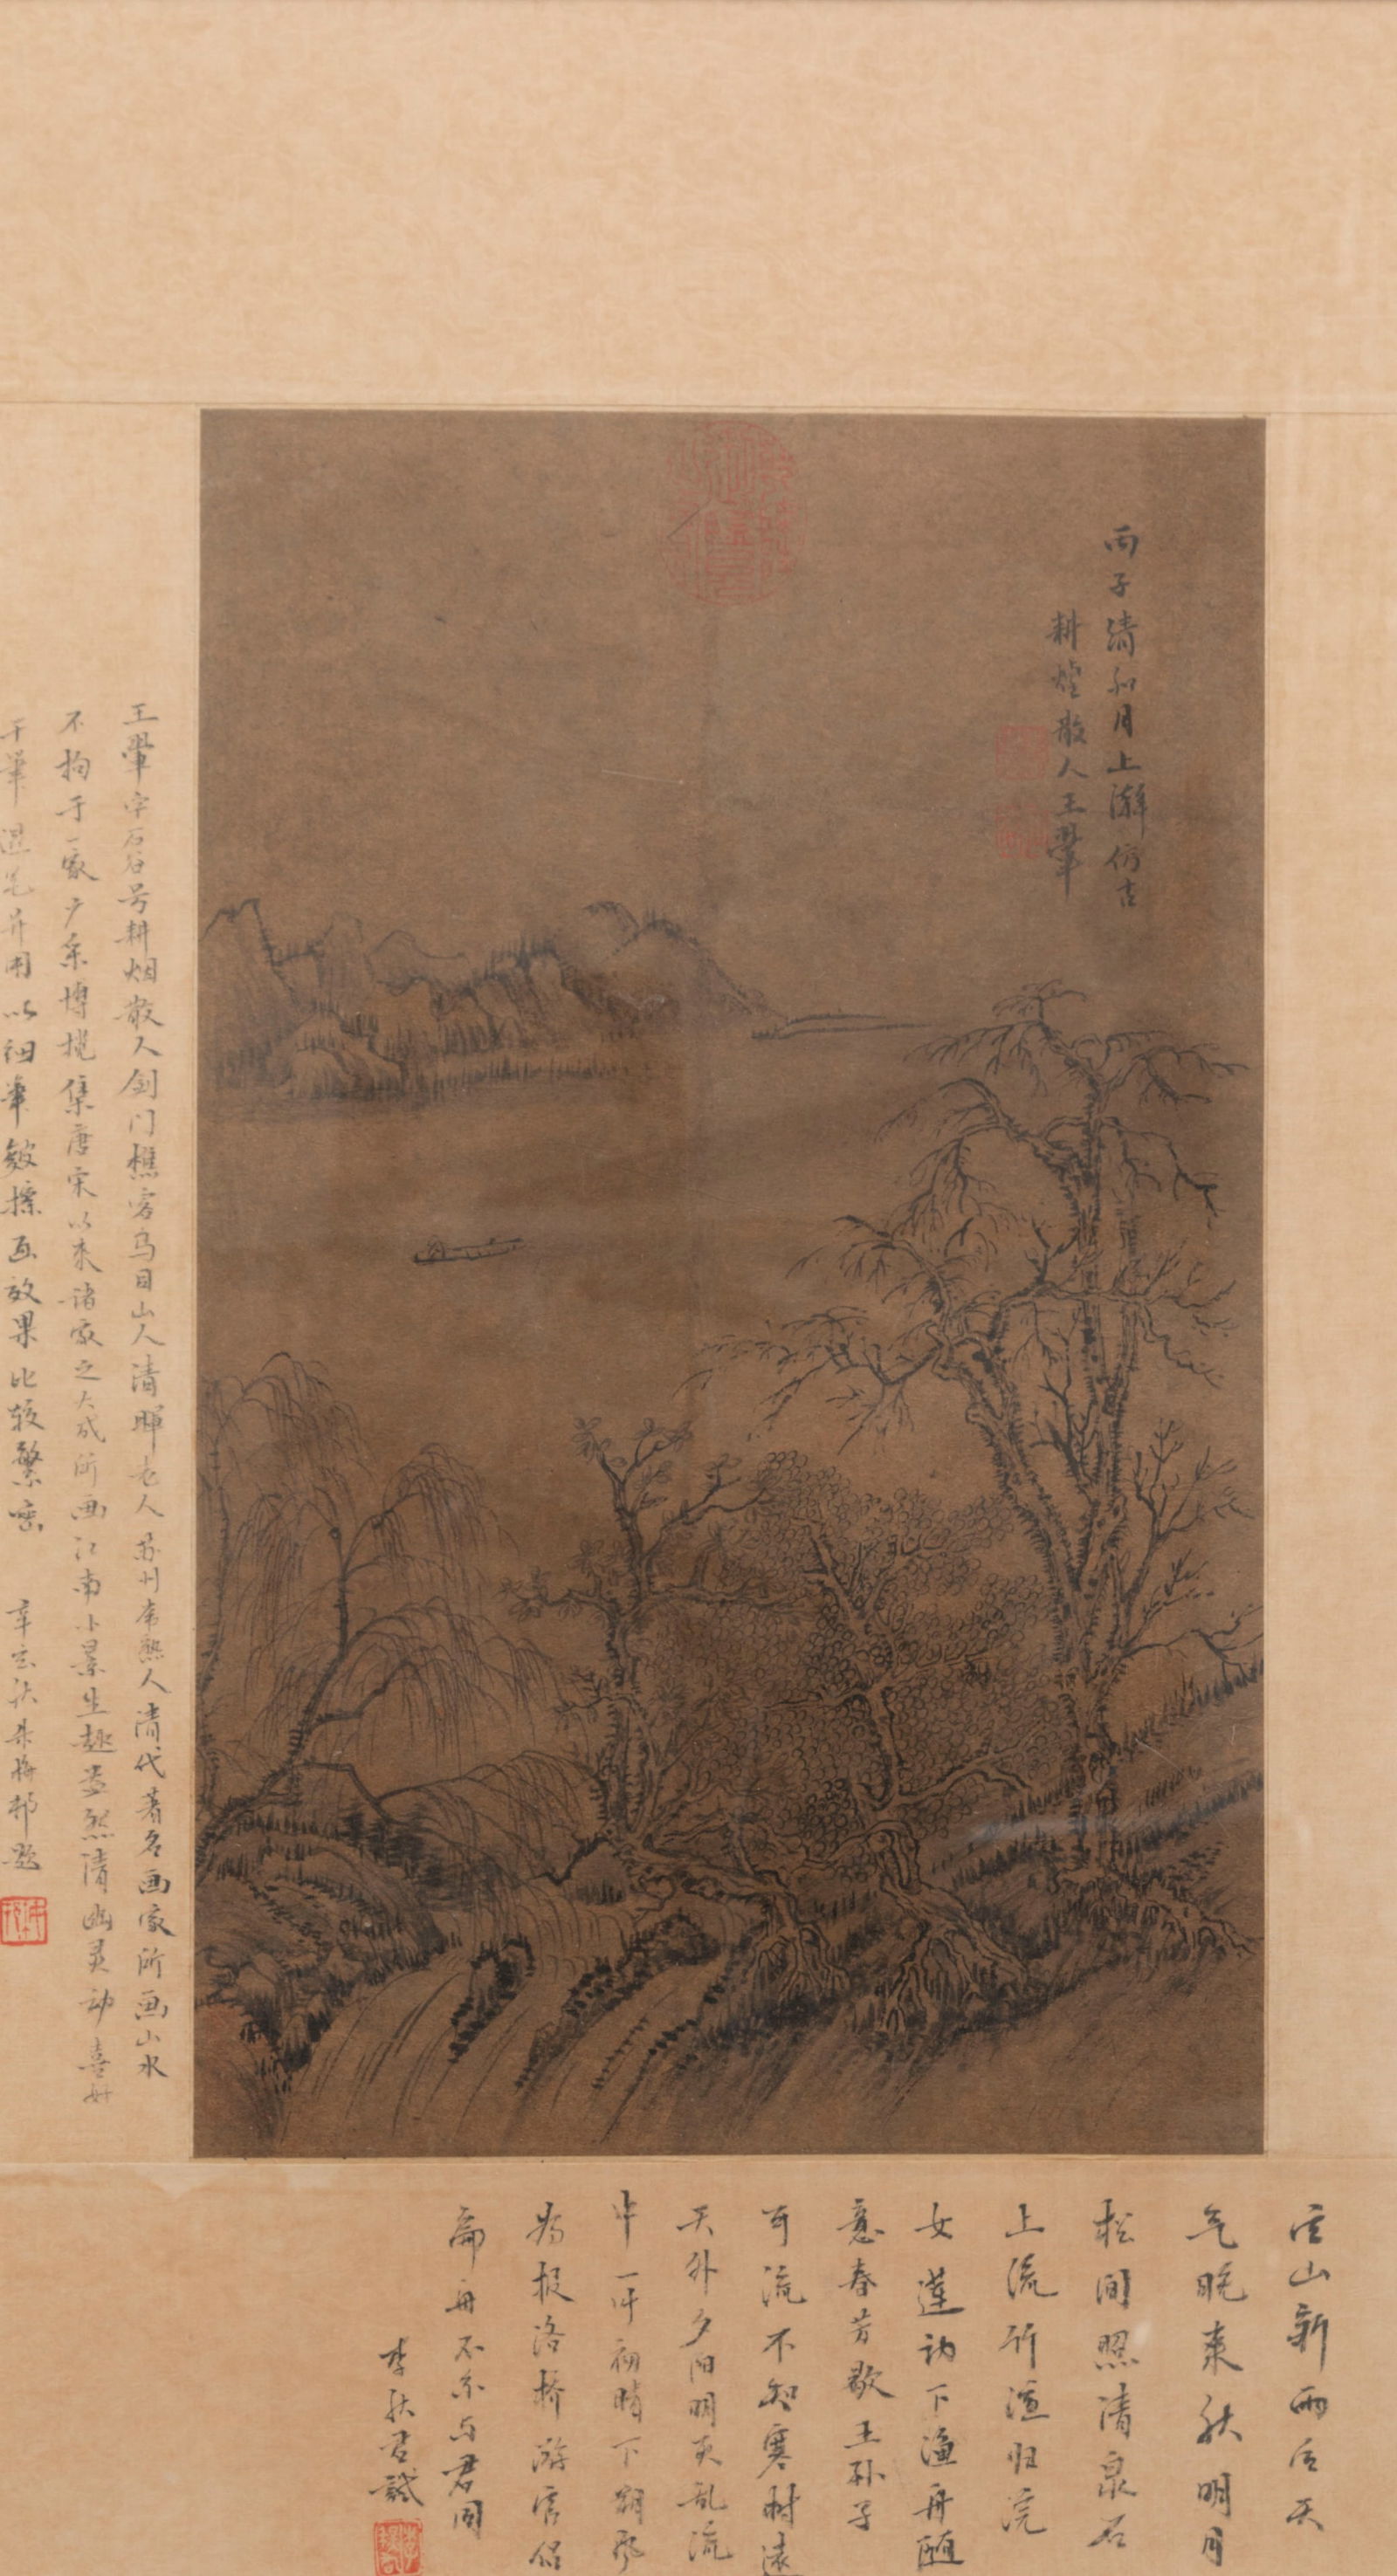 丙子清和月上澣仿古
耕煙散人王翬
王翬字石谷号耕烟散人剑门樵客乌目山人清晖老人苏州常熟人清代著名画家所画山水
不拘于一家广采博揽集唐宋以来诸家之大成所画江南小景生趣盎然清幽灵动喜好
干笔湿笔并用以细笔皴擦画效果比较繁密 辛亥秋朱梅邨题
空山新雨后天
气晚来秋明月
松间照清泉石
上流竹喧归浣
女莲动下渔舟随
意春芳歇王孙子
可流不知寒树远
天外夕阳明灭乱流
中一叶初晴下朔风
为报洛桥游宦侣
扁舟不系与君同
李秋君识